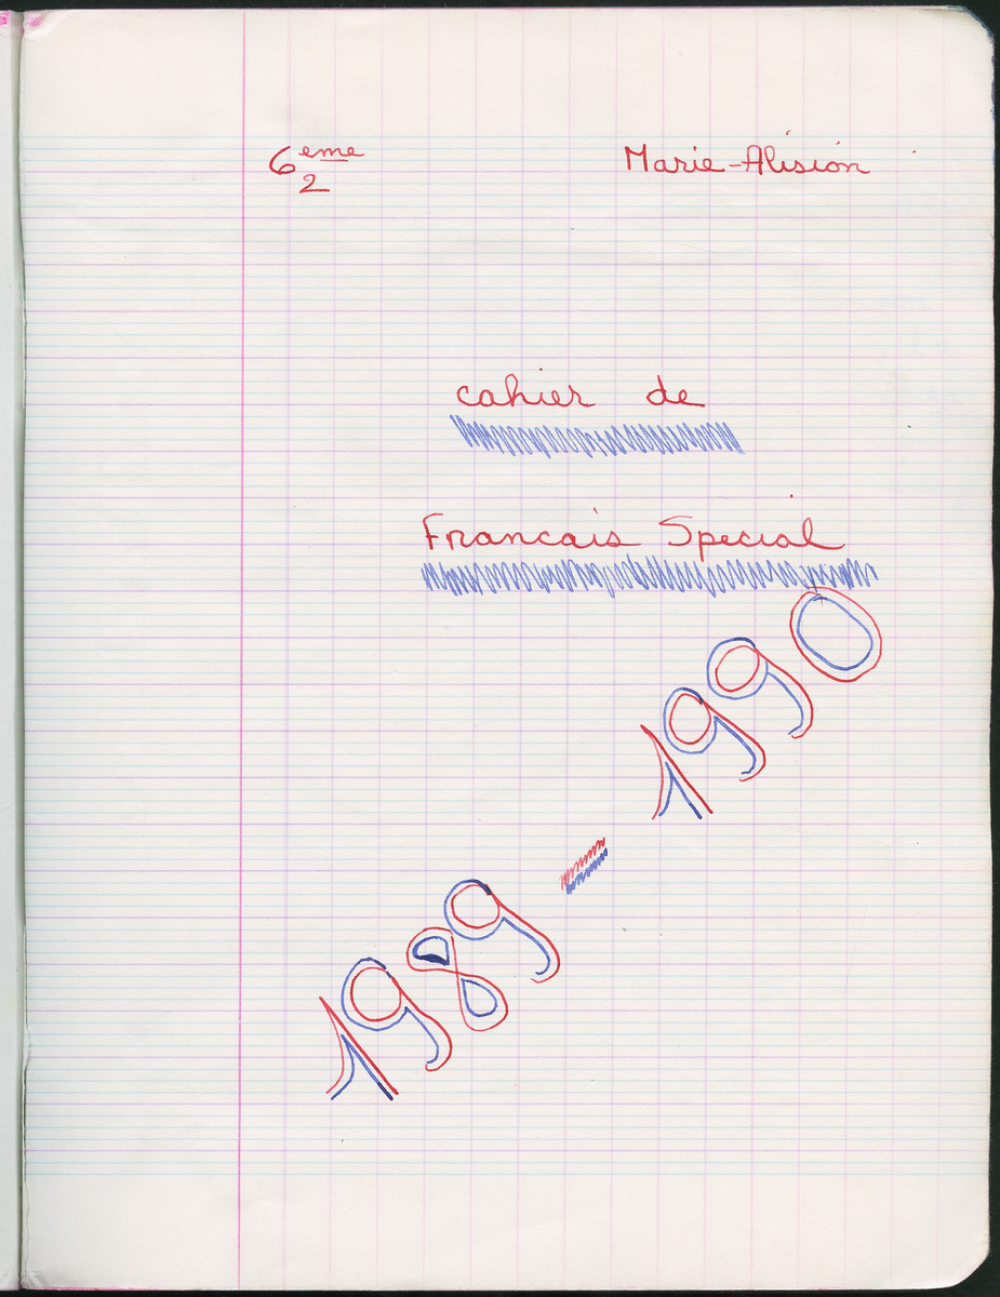 6eme 2 Marie-Alision
cahier de
Francais Special
1989 - 1990